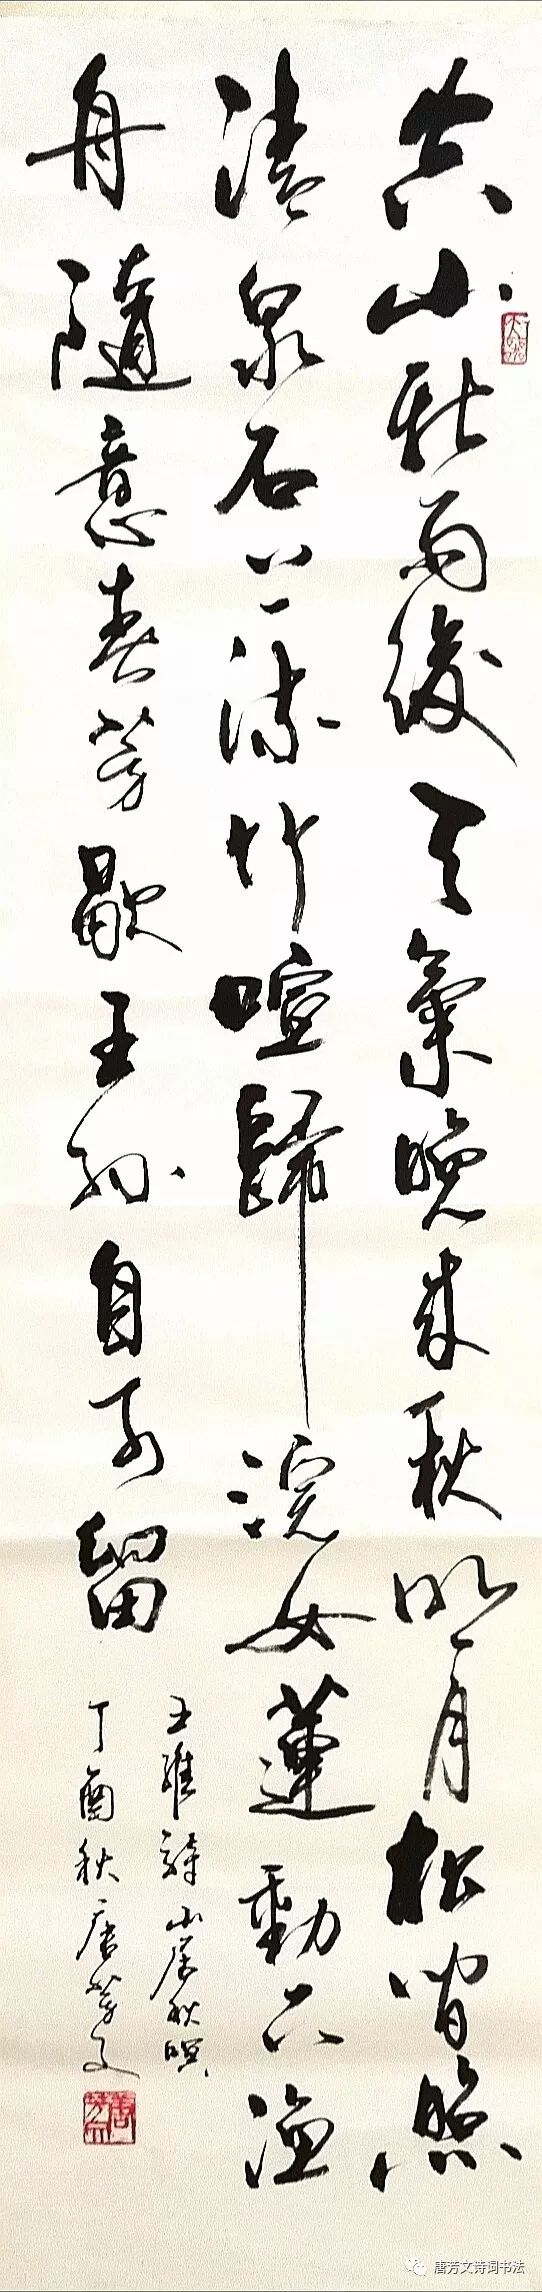 空山新雨後天氣晚來秋明月松間照
清泉石上流竹喧歸浣女蓮動下漁
舟隨意春芳歇王孫自可留
王維詩山居秋暝
丁酉秋唐芳文
唐芳文诗词书法